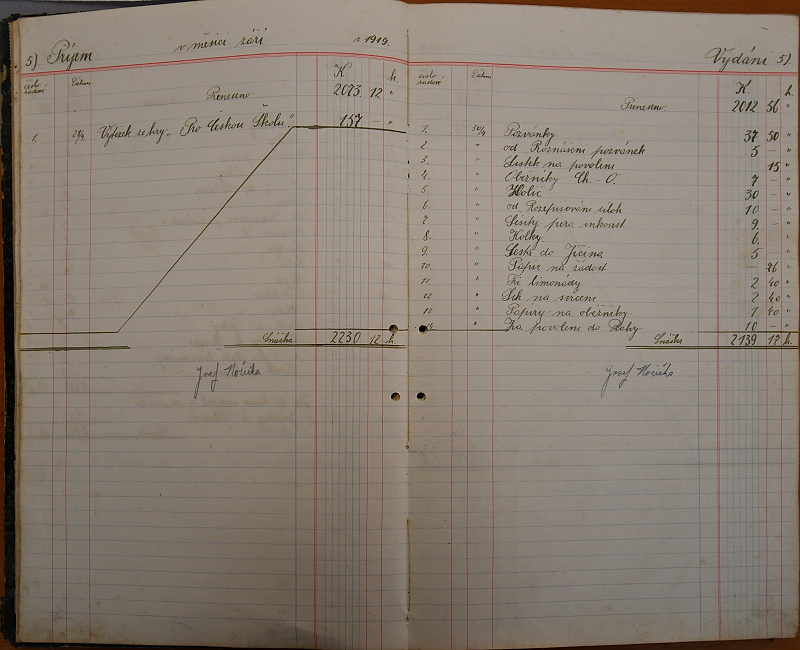 5) Příjem
v měsíci září
r. 1919.
číslo řadové
Datum
K
h.
Přeneseno
2093 12 "
1. 28/9 Výtěžek ze hry „Pro Českou Školu" 137 — "
Snáška 2230 12 h.
Josef Nožička
Vydání 5)
číslo řadové
Datum
K.
h.
Přeneseno 2012 56 "
1. 30/9 Pozvánky 37 50 "
2. " od Roznášení pozvánek 5 — "
3. " Lístek na povolení 15 "
4. " Oběrníky Ch. - O. 7 — "
5. " Holič 30 — "
6. " od Rozepisování úloh 10 — "
7. " Sešity pera inkoust 9. — "
8. " Kolky 6. — "
9. " Cesta do Jičína 5 — "
10. " Papír na žádost — 26 "
11. " Tři limonády 2 40 "
12 " Sek na svícení 2 40 "
13 " Papíry na oběrníky 1 40 "
14. " Za povolení do Prahy 10 — "
Snáška 2139 17 h.
Josef Nožička